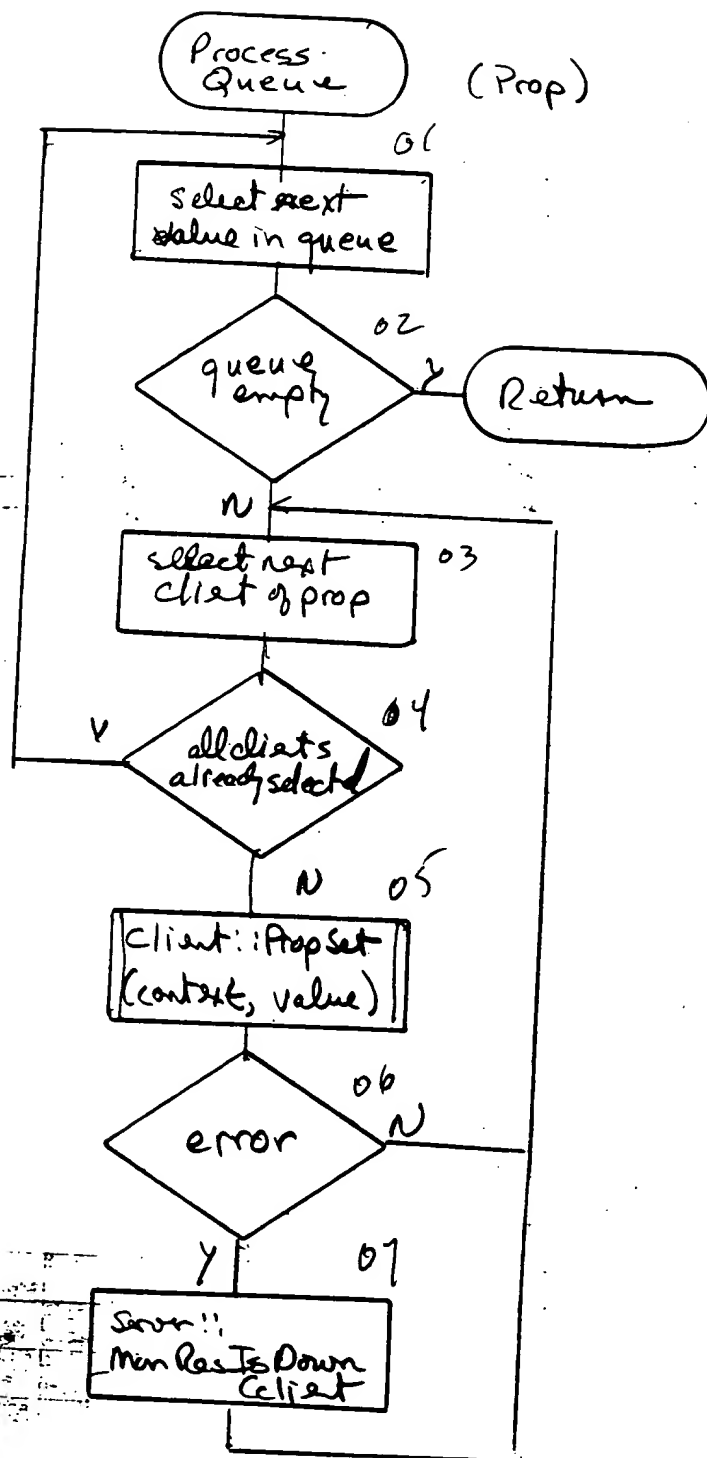 Process
Queue
(Prop)
01
select next
value in queue
02
queue
empty
Y
Return
N
select next
client of prop
03
04
Y
all clients
already selected
N
05
Client::PropSet
(context, value)
06
error
N
Y
07
Server::
Mon Res Is Down
(client